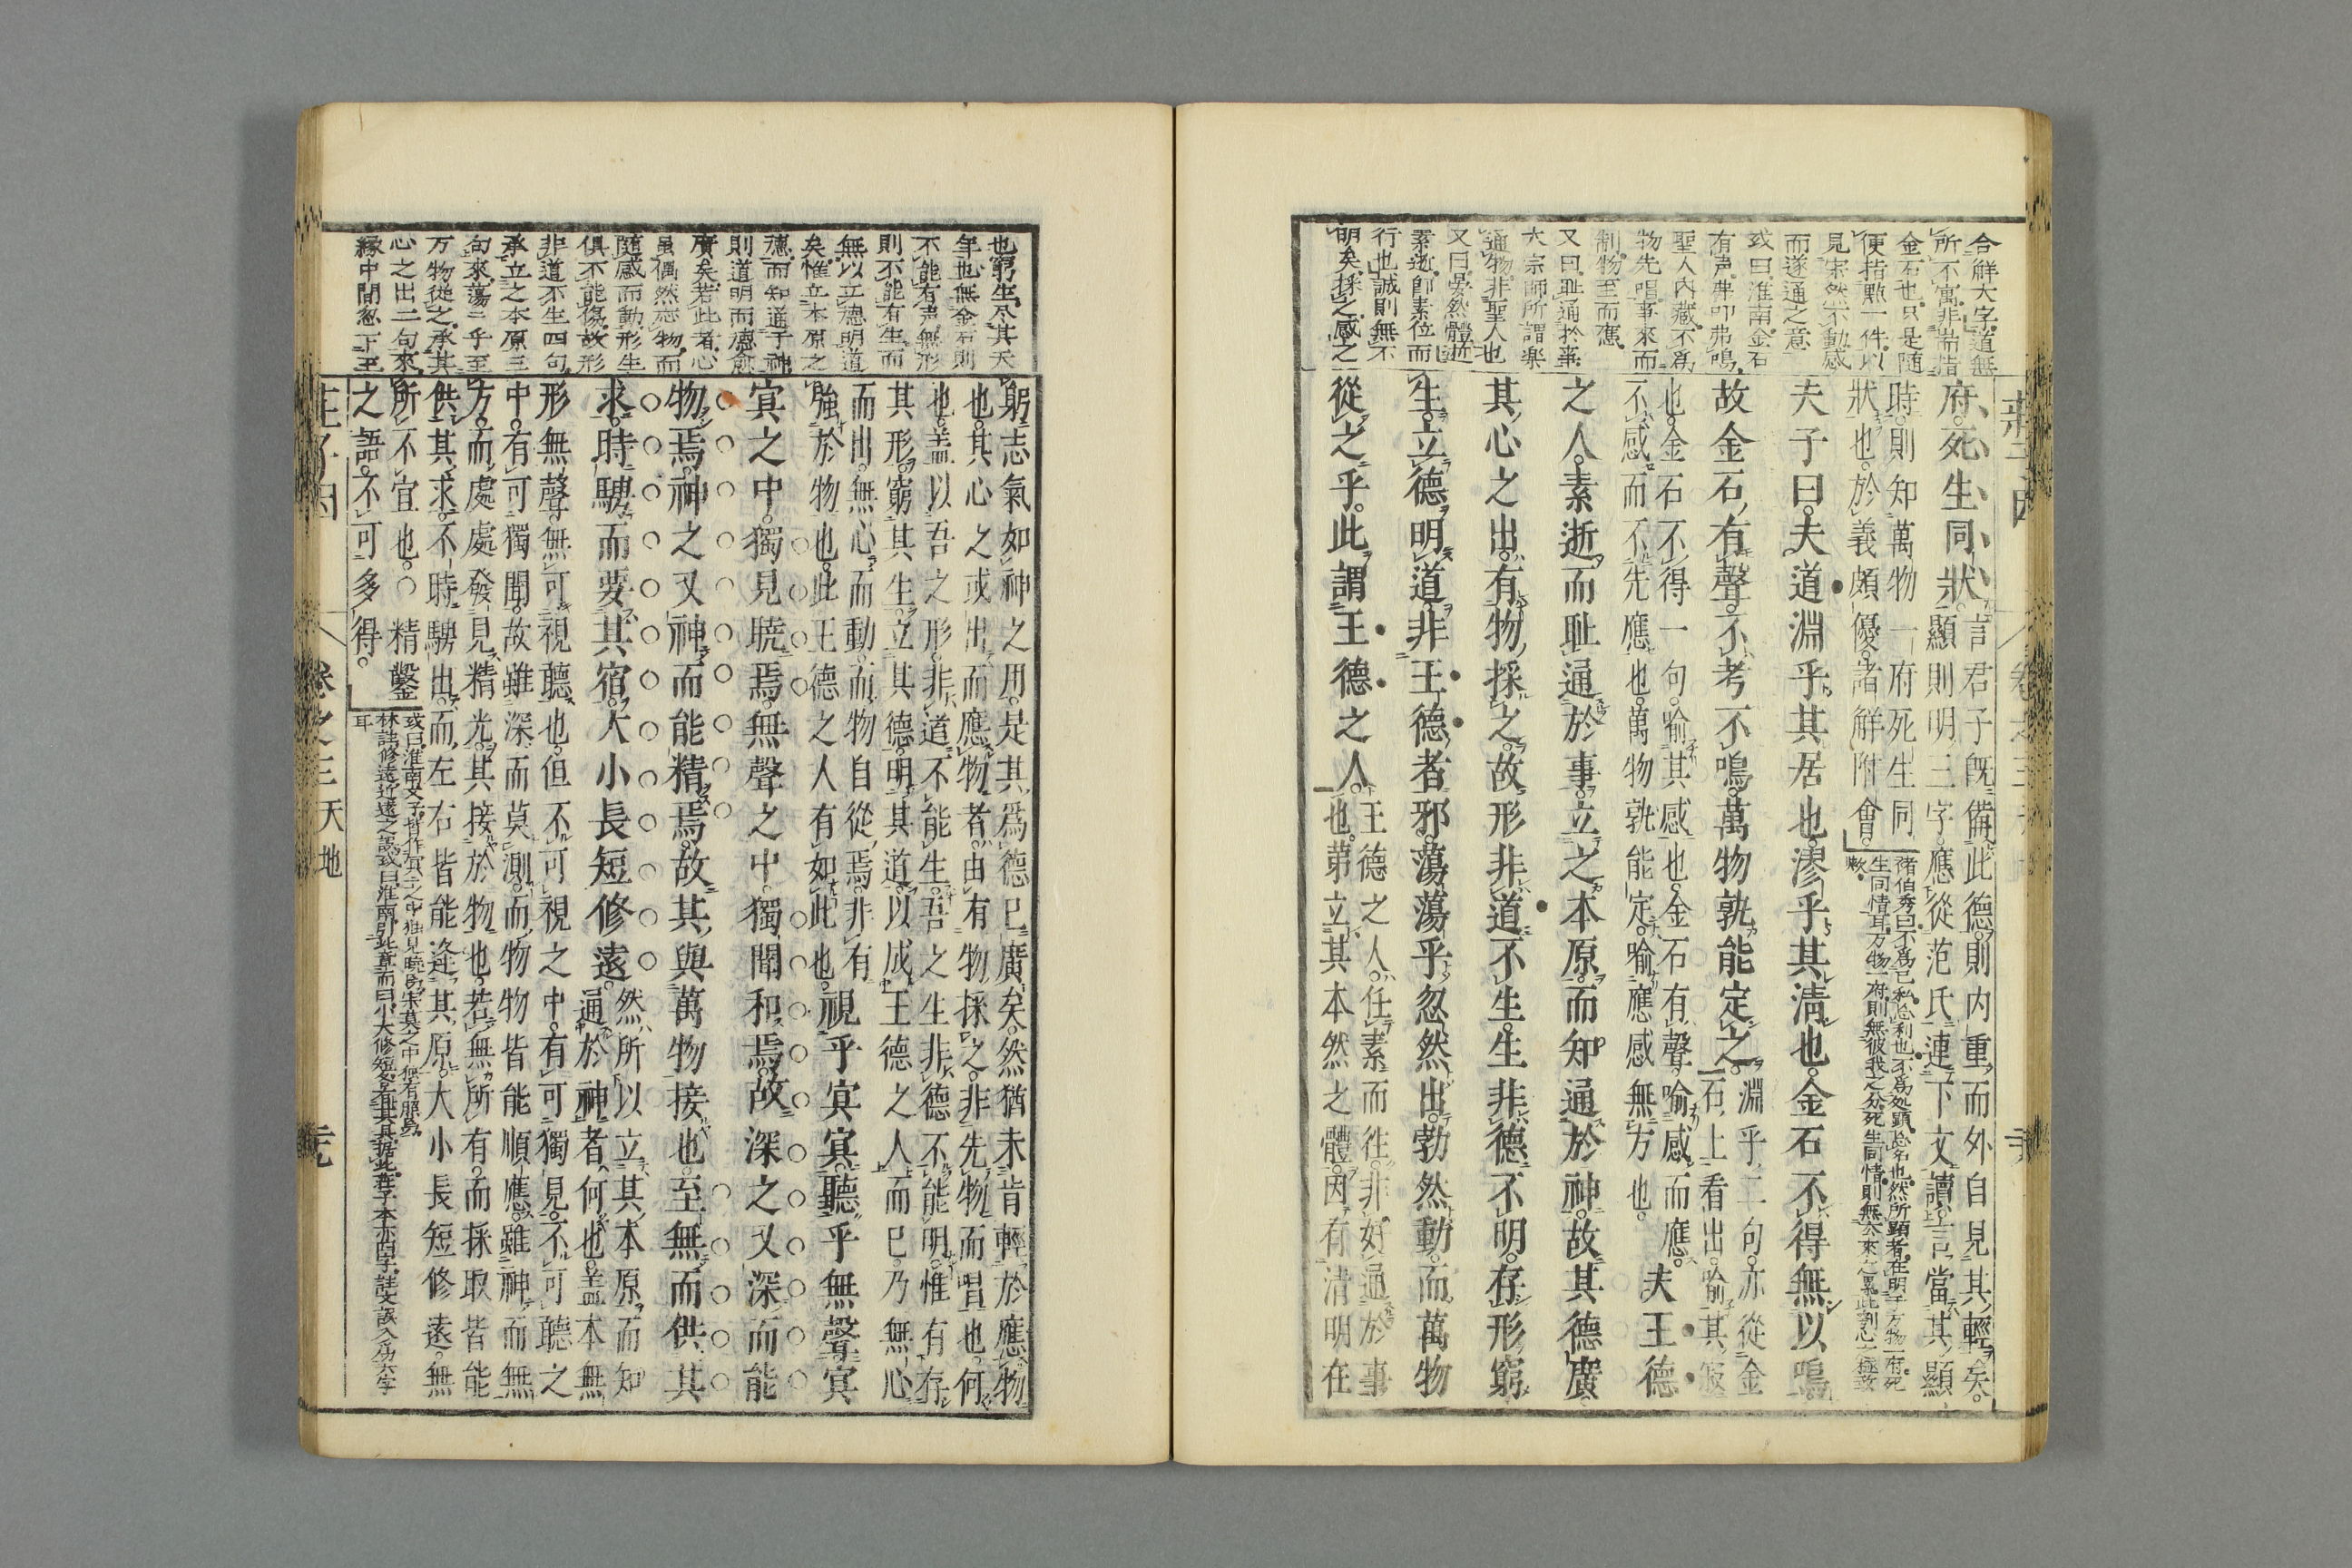 合觧大字道無
所不寓非耑指
金石也只是随
便指㸃一件以
見宋然不動感
而遂通之意
或曰淮南金石
有声弗叩弗鳴
聖人内藏不爲
物先唱事來而
制物至而應
又曰耻通於事
大宗師所謂楽
通物非聖人也
又曰晏然體逝
素逝卽素位而
行也誠則無不
明矣採之感之
府死生同狀
言君子旣備此德則内重而外自見其輕矣
顯則明三字應從范氏連下文讀言當其顯
時則知萬物一府死生同
狀也於義頗優諸觧附會
褚伯秀曰不爲己私
夫子曰夫道淵乎其居也漻乎其淸也金石不得無以鳴
故金石有聲不考不鳴萬物孰能定之
淵乎二句亦從金
石上看出喻其寂
也金石不得一句喻其感也金石有聲喻感而應
不感而不先應也萬物孰能定喻應感無方也
夫王德
之人素逝而耻通於事立之本原而知通於神故其德廣
其心之出有物採之故形非道不生生非德不明存形窮
生立德明道非王德者邪蕩蕩乎忽然出勃然動而萬物
從之乎此謂王德之人
王德之人任素而徃非好通於事
也第立其本然之體因有清明在
也窮生尽其天
年也無金石則
不能有声無形
則不能有生而
無以立德明道
矣惟立本原之
德而知通于神
則道明而德愈
廣矣若此者心
虽偶然忘物而
随感而動形生
俱不能傷故形
非道不生四句
承立之本原三
句來蕩二乎至
万物從之承其
心之出二句來
緣中間忽下王
躬志氣如神之用是其爲德已廣矣然猶未肯輕於應物
也其心之或出而應物者由有物採之非先物而唱也何
也盖以吾之形非道不能生吾之生非德不能明惟有存
其形窮其生立其德明其道以成王德之人而已乃無心
而出無心而動而物自從焉非有
強於物也此王德之人有如此也
視乎㝠㝠聽乎無聲㝠
㝠之中獨見曉焉無聲之中獨聞和焉故深之又深而能
物焉神之又神而能精焉故其與萬物接也至無而供其
求時騁而要其宿大小長短修遠
然所以立其本原而知
通於神者何也盖本無
形無聲無可視聽也但不可視之中有可獨見不可聽之
中有可獨聞故雖深而莫測而物物皆能順應雖神而無
方而處處發見精光其接於物也若無所有而採取皆能
供其求不時騁出而左右皆能逢其原大小長短修遠無
所不宜也○精鑿
之語不可多得
或曰淮南文子皆作㝠㝠之中独見曉焉宋莫之中独有照焉
林註修遠近遠之誤或曰淮南引此章而曰小大修短各有其具据此莊子本亦四字註文誤入爲六字
耳
莊子因
卷之三天地